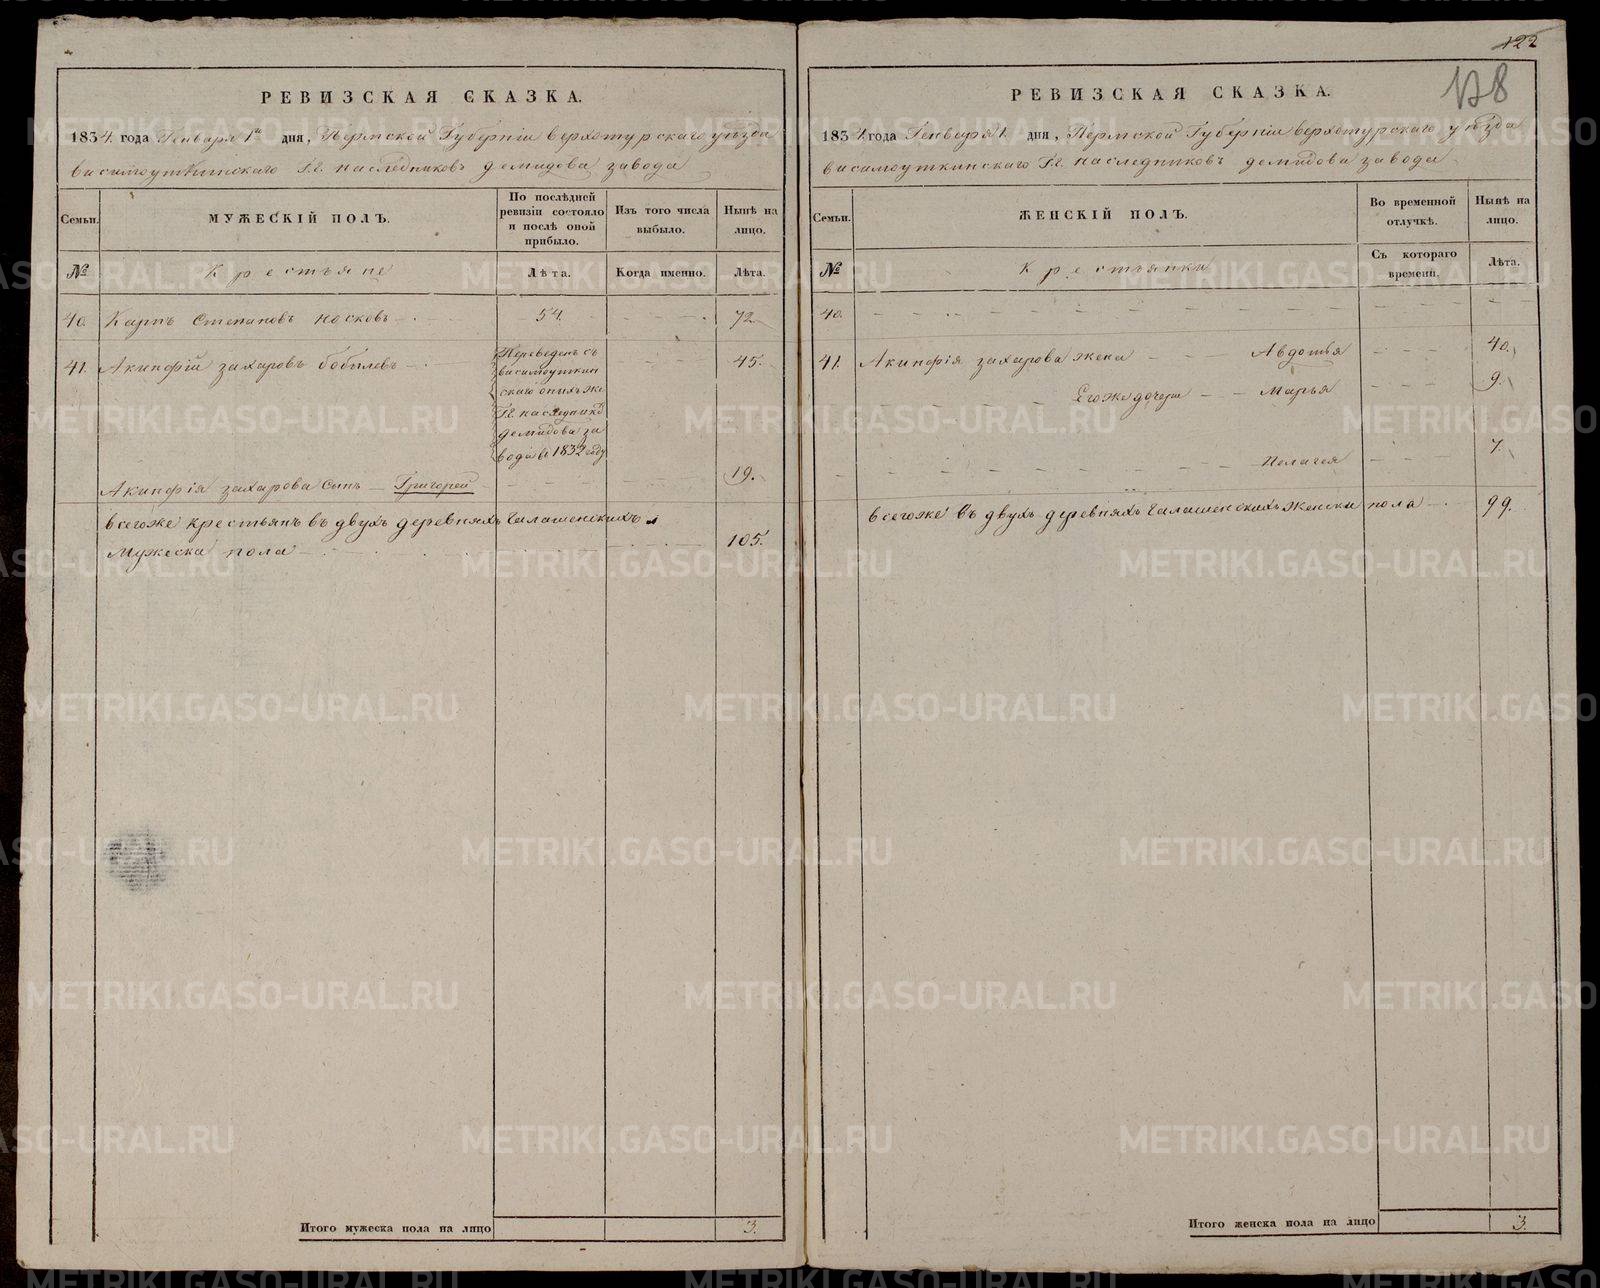 122
128
РЕВИЗСКАЯ СКАЗКА.
1834. года Генваря 1го дня, Пермской Губерніи верхотурскаго уѣзда
висимоуткинскаго Г.Г. наслѣдниковъ демидова завода
Семьи.
МУЖЕСКІЙ ПОЛЪ.
По послѣдней ревизіи состояло и послѣ оной прибыло.
Изъ того числа выбыло.
Нынѣ на лицо.
№
Крестьяне
Лѣта.
Когда именно.
Лѣта.
40. Карпъ Степановъ Носковъ 54. 72
41. Акинфій захаровъ бобылевъ 45.
Переведенъ съ
висимоуткин
скаго оныхъ же
Г.Г. наслѣдник
демидова за
вода въ 1832 году
Акинфія захарова сынъ Григорей 19.
всегоже крестьянъ въ двухъ деревняхъ Галашенскихъ
Мужеска пола 105.
Итого мужеска пола на лицо 3.
РЕВИЗСКАЯ СКАЗКА.
1834. года Генваря 1. дня, Пермской Губерніи верхотурскаго уѣзда
висимоуткинскаго Г.Г. наследниковъ демидова завода
Семьи.
ЖЕНСКІЙ ПОЛЪ.
Во временной отлучкѣ.
Нынѣ на лицо.
№
Крестьянки
Съ котораго времени.
Лѣта.
40.
41. Акинфія захарова жена Авдотья 40.
Егоже дочери Марья 9.
Пелагея 7.
всегоже въ двухъ деревняхъ Галашенскихъ женска пола 99.
Итого женска пола на лицо 3.
METRIKI.GASO-URAL.RU